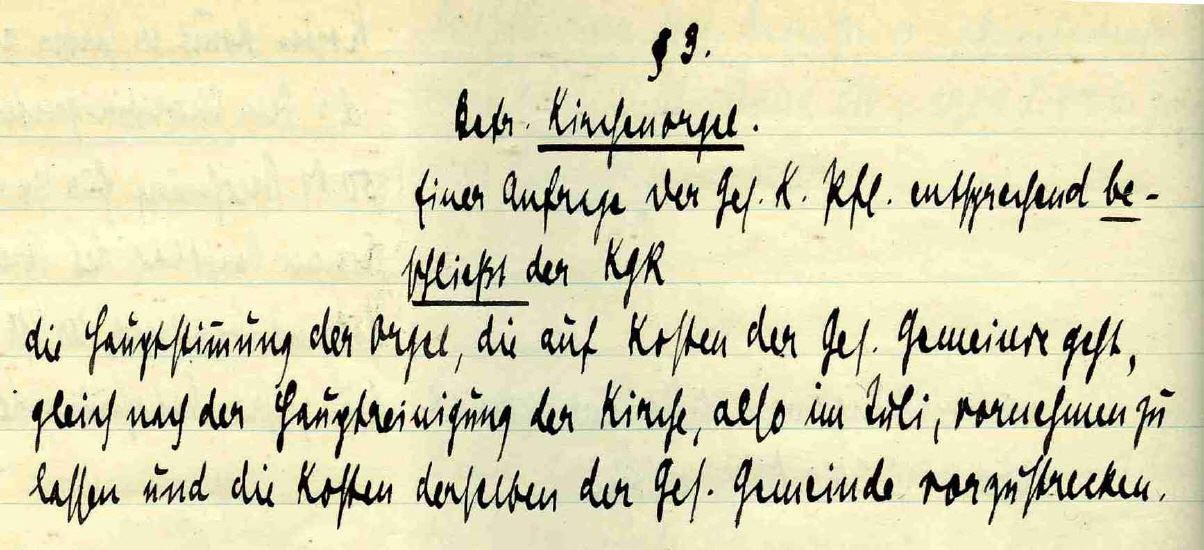 § 3.
Betr. Kirchenorgel.
Einer Anfrage der Ges. K. Pfl. entsprechend be-
schließt der KGR
die Hauptstimmung der Orgel, die auf Kosten der Ges. Gemeinde geht,
gleich nach der Hauptreinigung der Kirche, also im Juli, vornehmen zu
lassen und die Kosten derselben der Ges. Gemeinde vorzustrecken.